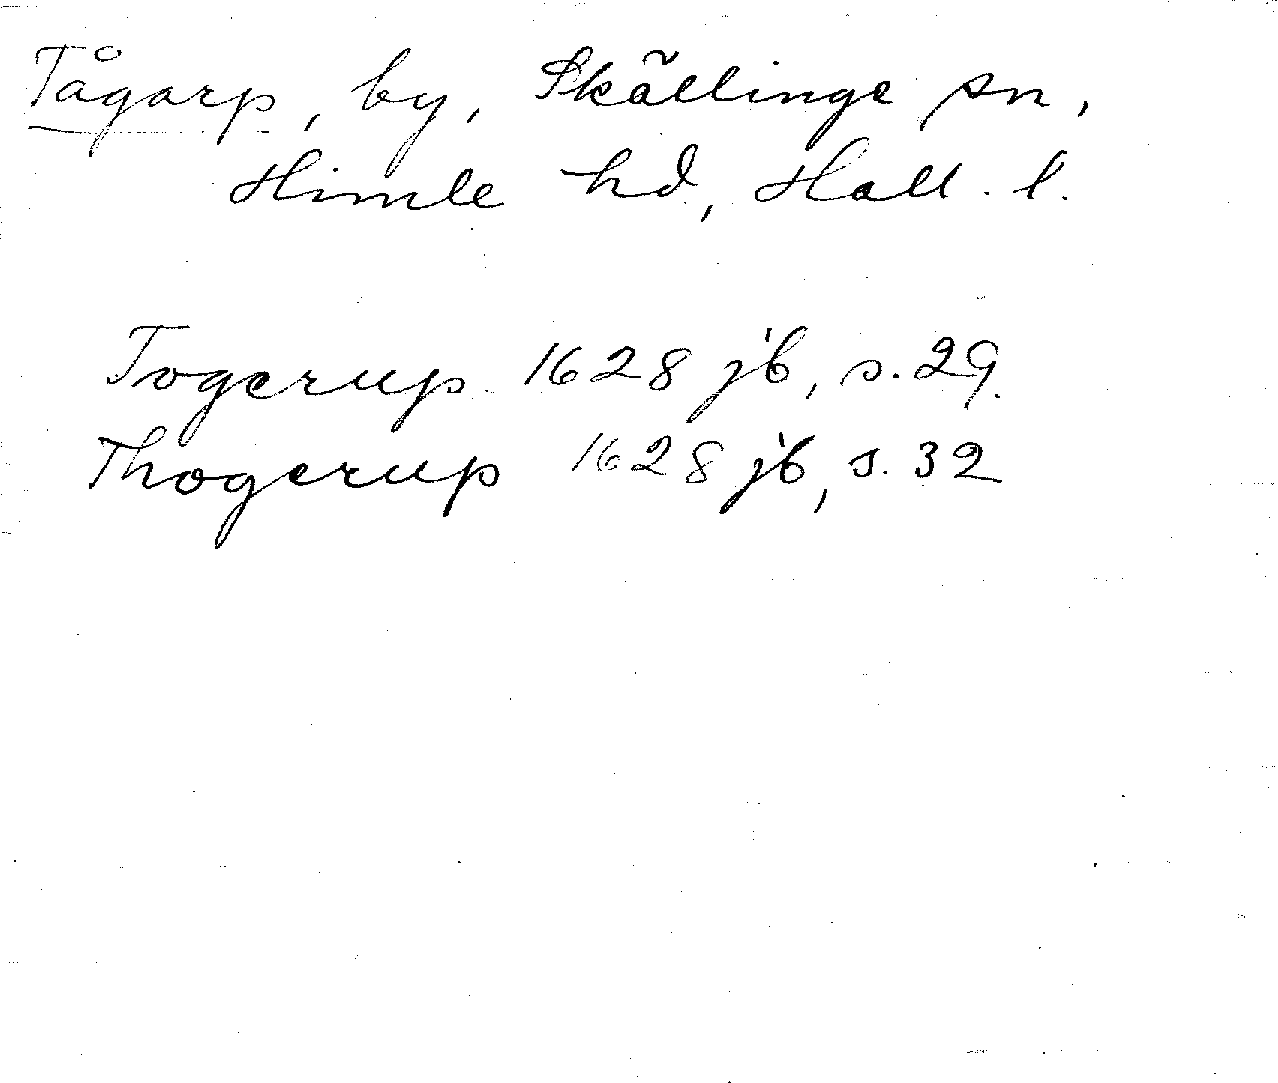 Tågarp, by, Skällinge sn,
Himle hd, Hall. l.
Togerup 1628 jb, s. 29.
Thogerup 1628 jb, s. 32